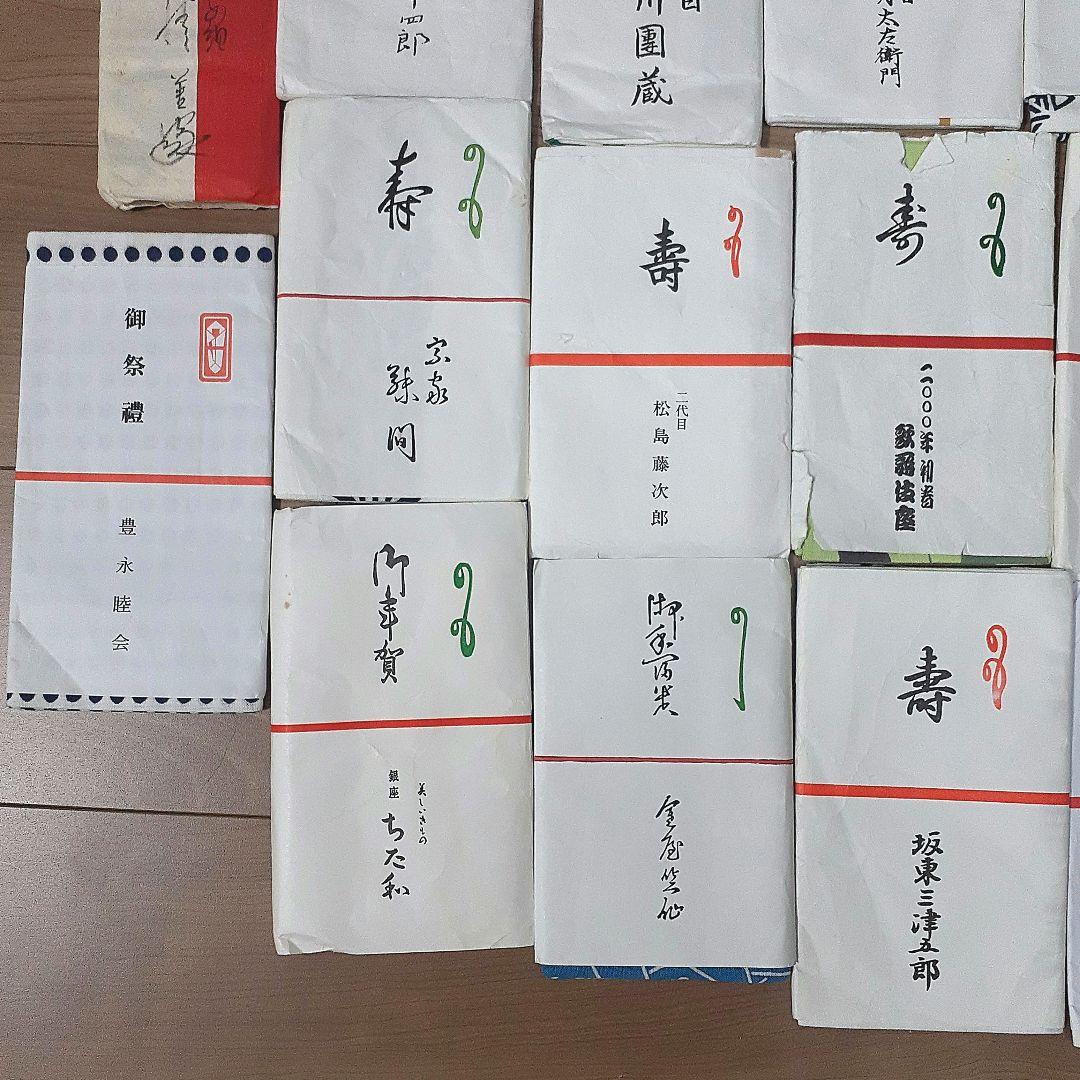 四郎
團蔵
太左衛門
御祭禮
豊永睦会
寿
宗家
藤間
壽
二代目
松島藤次郎
寿
二〇〇〇年初春
歌舞伎座
御年賀
美しいきもの
銀座
ちた和
金屋竺仙
壽
坂東三津五郎